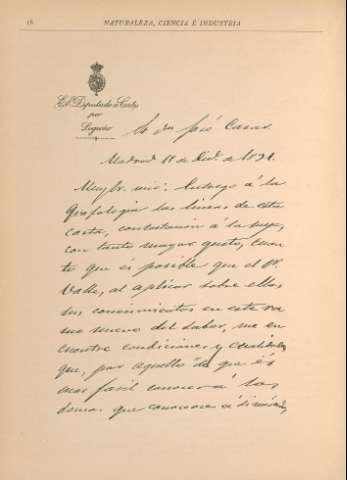 16 NATURALEZA, CIENCIA É INDUSTRIA
El Diputado a Cortes
por
Sr dn José Casas.
Madrid 11 de Dic. de 1891.
Muy Sr. mio: Entrego á la
Grafología las lineas de esta
carta, contestacion á la suya,
con tanto mayor gusto, cuan
to que es posible que el Sr.
Valle, al aplicar sobre ellas
sus conocimientos en este ra
mo nuevo del saber, me en
cuentre condiciones y cualidades
que, por aquello de que es
mas facil conocer á los
demas que conocerse á si mismo,